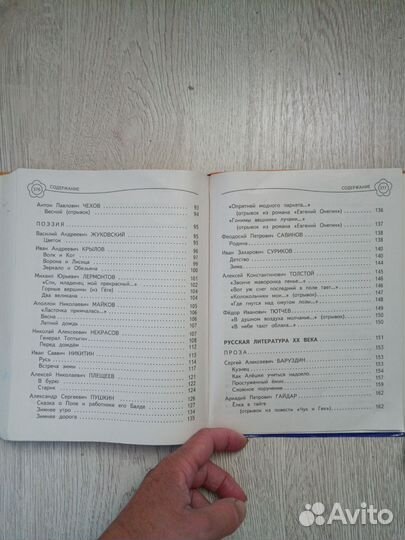 376
СОДЕРЖАНИЕ
Антон Павлович ЧЕХОВ 93
Весной (отрывок) 94
ПОЭЗИЯ 95
Василий Андреевич ЖУКОВСКИЙ 95
Цветок 95
Иван Андреевич КРЫЛОВ
Волк и Кот
Ворона и Лисица
Зеркало и Обезьяна
Михаил Юрьевич ЛЕРМОНТОВ
«Спи, младенец мой прекрасный...»
Горные вершины (из Гёте)
Два великана
Аполлон Николаевич МАЙКОВ
«Ласточка примчалась...»
Весна
Летний дождь
Николай Алексеевич НЕКРАСОВ
Генерал Топтыгин
Перед дождём
Иван Саввич НИКИТИН
Русь
Встреча зимы
Алексей Николаевич ПЛЕЩЕЕВ
В бурю
Старик
Александр Сергеевич ПУШКИН
Сказка о Попе и работнике его Балде
Зимнее утро
Зимняя дорога 135
СОДЕРЖАНИЕ
377
«Опрятней модного паркета...»
(отрывок из романа «Евгений Онегин») 136
«Гонимы вешними лучами...»
(отрывок из романа «Евгений Онегин»)
Феодосий Петрович САВИНОВ
Родина
Иван Захарович СУРИКОВ
Детство
Зима
Алексей Константинович ТОЛСТОЙ
«Звонче жаворонка пенье...»
«Вот уж снег последний в поле тает...»
«Колокольчики мои...» (отрывок)
«Где гнутся над омутом лозы...»
Фёдор Иванович ТЮТЧЕВ
«В душном воздуха молчанье...» (отрывок) 150
«В небе тают облака...»
РУССКАЯ ЛИТЕРАТУРА XX ВЕКА 151
ПРОЗА
Сергей Алексеевич БАРУЗДИН
Кузнец
Как Алёшке учиться надоело
Простуженный ёжик
Сложное поручение
Аркадий Петрович ГАЙДАР 162
Ёлка в тайге
(отрывок из повести «Чук и Гек») 162
Avito